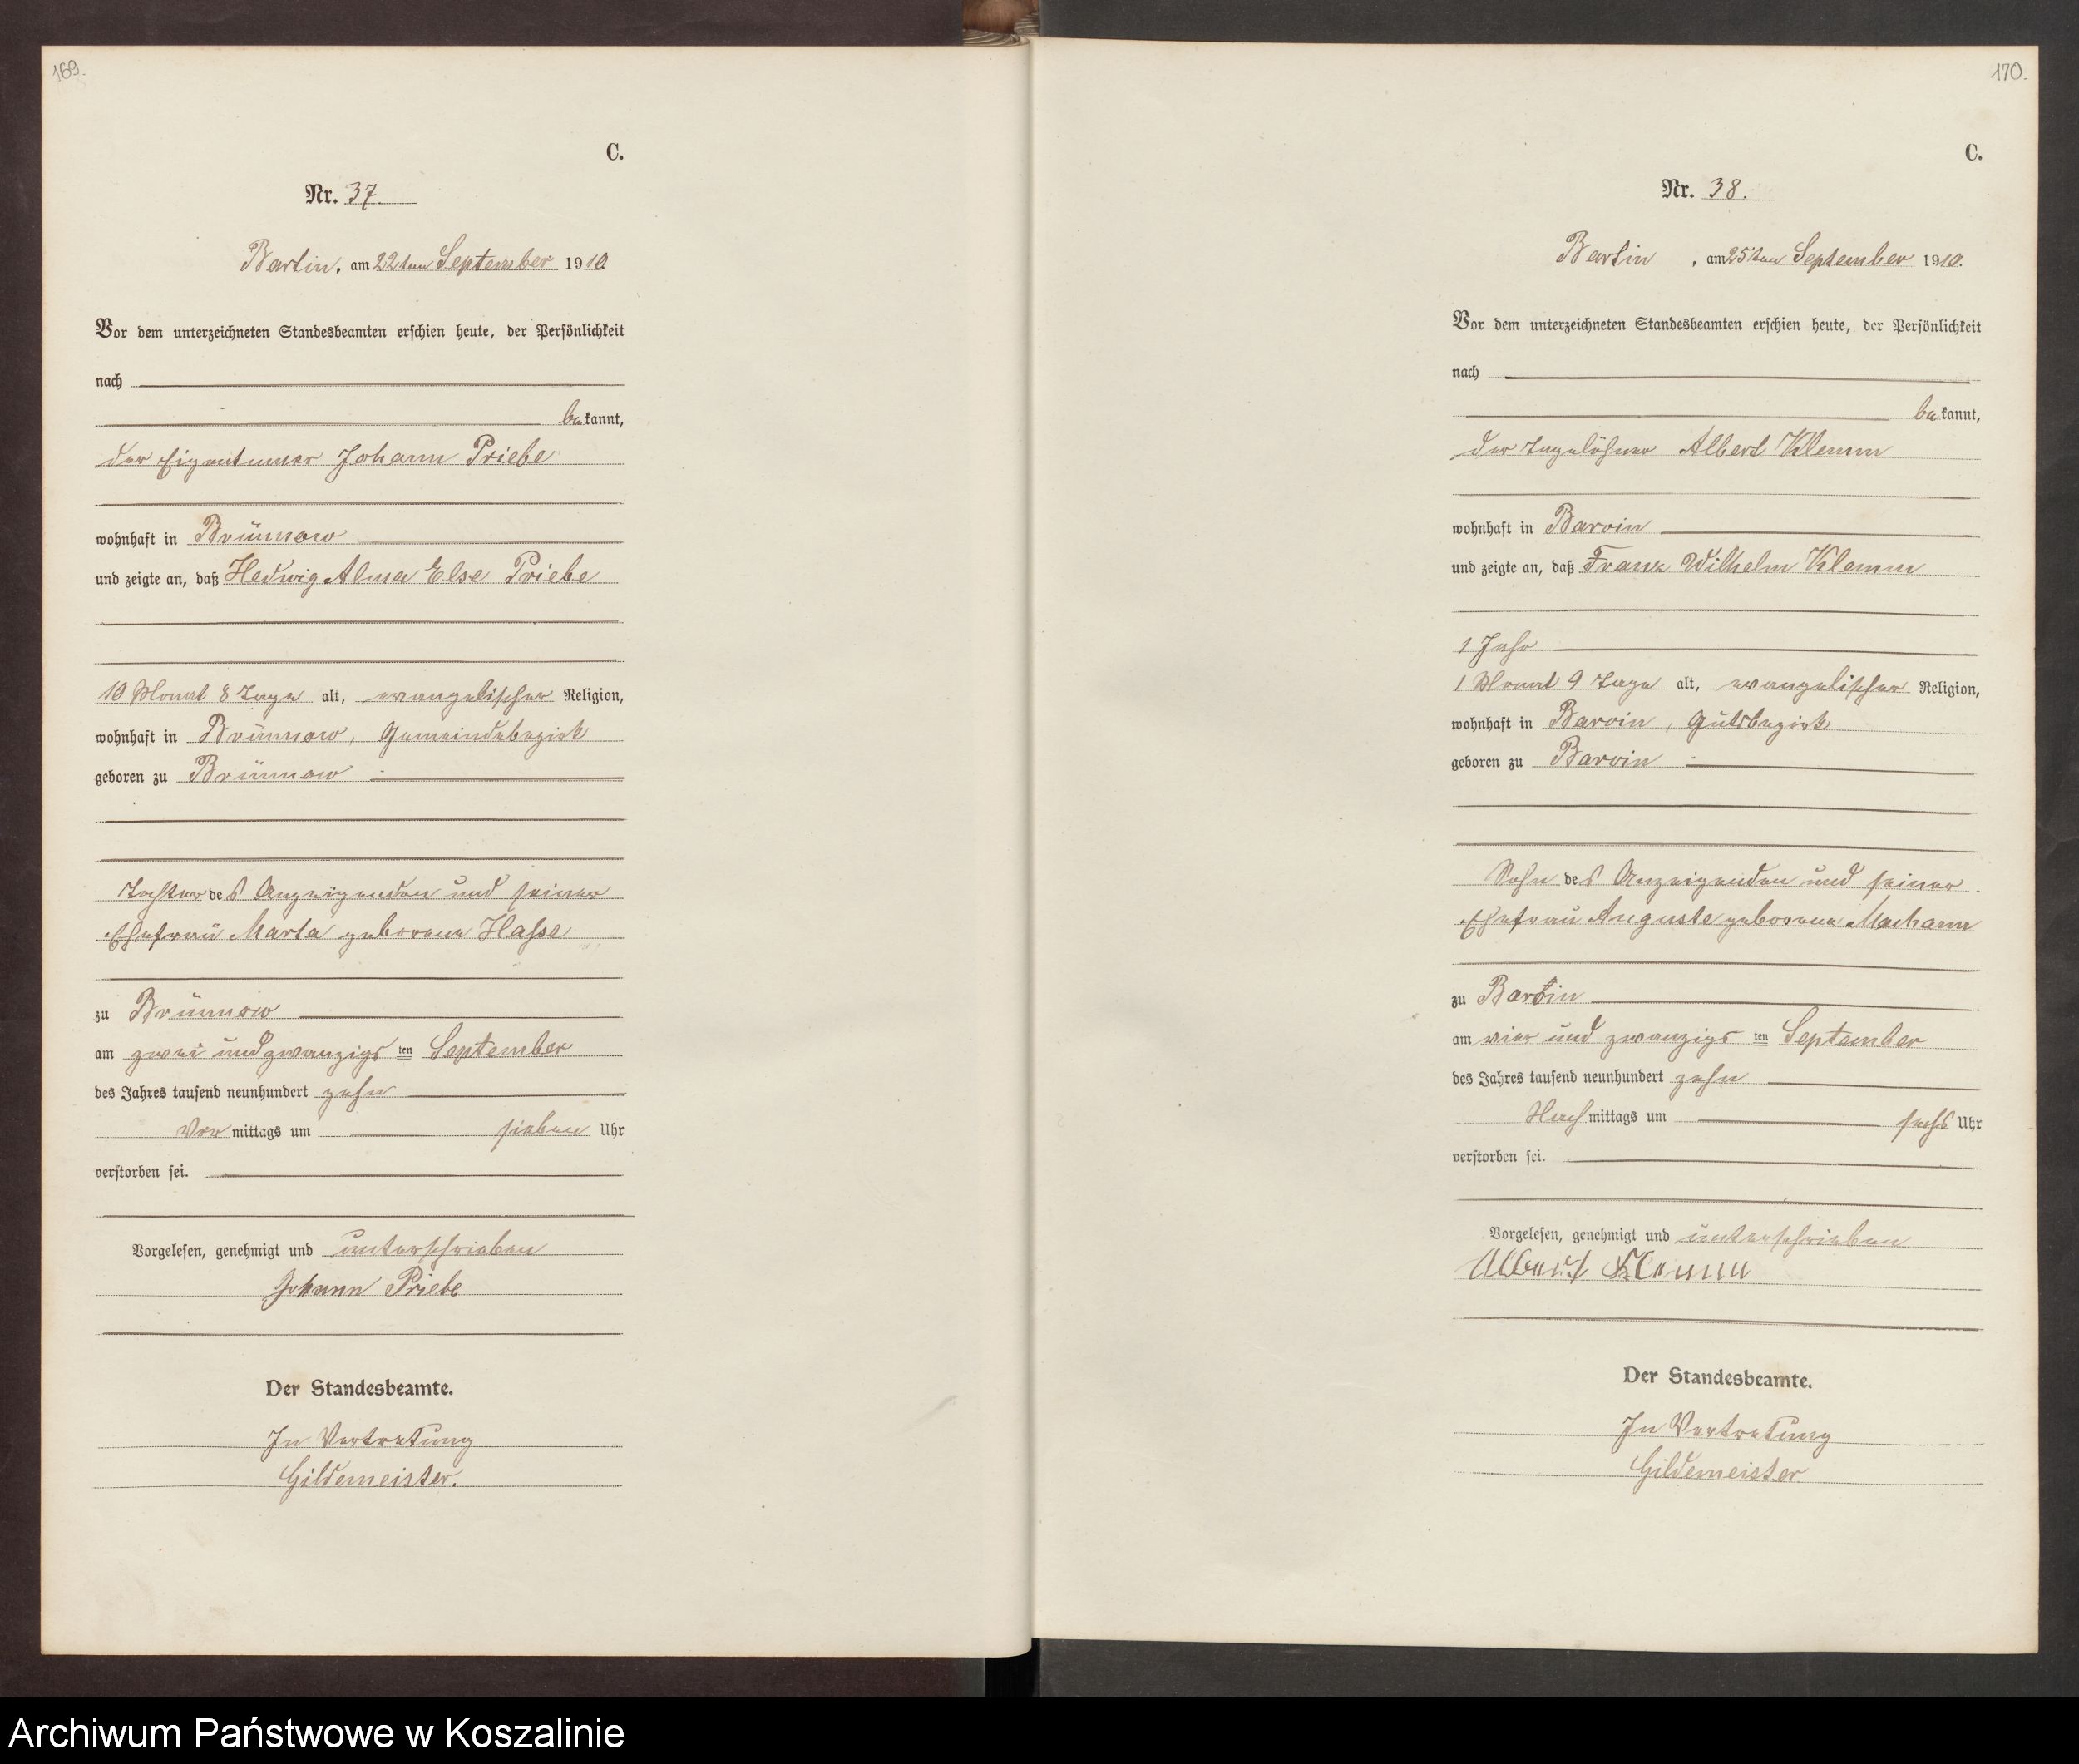 169.
C.
Nr. 37.
Bartin, am 22ten September 1910.
Vor dem unterzeichneten Standesbeamten erschien heute, der Persönlichkeit
nach
bekannt,
der Eigentumer Johann Priebe
wohnhaft in Brünnow
und zeigte an, daß Hedwig Alma Else Priebe
10 Monat 8 Tage alt, evangelischer Religion,
wohnhaft in Brünnow, Gemeindebezirk
geboren zu Brünnow
Tochter des Anzeigenden und seiner
Ehefrau Marta geborene Hasse
zu Brünnow
am zwei und zwanzigsten September
des Jahres tausend neunhundert zehn
Vormittags um sieben Uhr
verstorben sei.
Vorgelesen, genehmigt und unterschrieben
Johann Priebe
Der Standesbeamte.
In Vertretung
Gildemeister.
170.
C.
Nr. 38.
Bartin, am 25ten September 1910.
Vor dem unterzeichneten Standesbeamten erschien heute, der Persönlichkeit
nach
bekannt,
der Tagelöhner Albert Klemm
wohnhaft in Barvin
und zeigte an, daß Franz Wilhelm Klemm
1 Jahr
1 Monat 9 Tage alt, evangelischer Religion,
wohnhaft in Barvin, Gutsbezirk
geboren zu Barvin
Sohn des Anzeigenden und seiner
Ehefrau Auguste geborene Machann
zu Bartin
am vier und zwanzigsten September
des Jahres tausend neunhundert zehn
Nachmittags um sechs Uhr
verstorben sei.
Vorgelesen, genehmigt und unterschrieben
Albert Klemm
Der Standesbeamte.
In Vertretung
Gildemeister
Archiwum Państwowe w Koszalinie